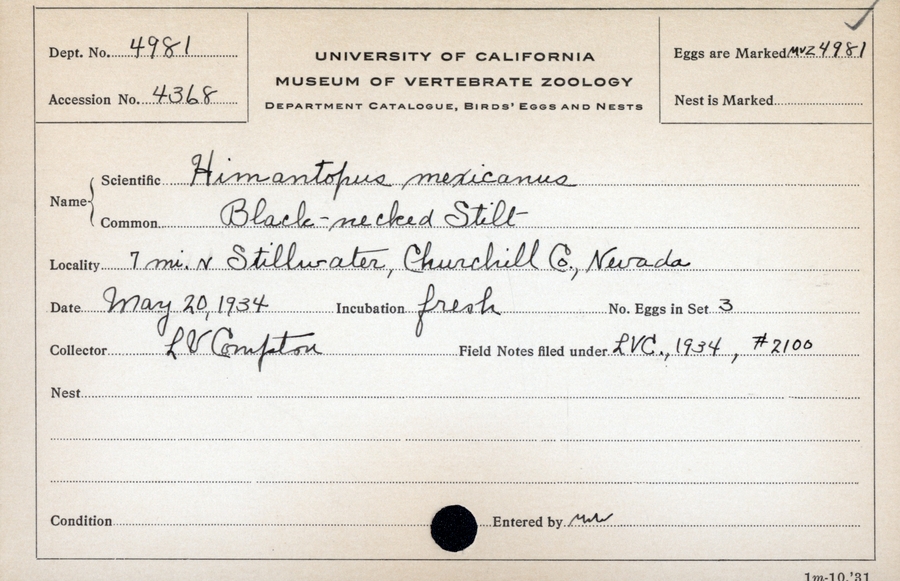 Dept. No. 4981
Accession No. 4368
UNIVERSITY OF CALIFORNIA
MUSEUM OF VERTEBRATE ZOOLOGY
DEPARTMENT CATALOGUE, BIRDS' EGGS AND NESTS
Eggs are Marked MVZ 4981
Nest is Marked
Name
Scientific Himantopus mexicanus
Common Black-necked Stilt
Locality 7 mi. N Stillwater, Churchill Co., Nevada
Date May 20, 1934 Incubation fresh No. Eggs in Set 3
Collector LV Compton Field Notes filed under LVC., 1934, #2100
Nest
Condition Entered by
1m-10,'31